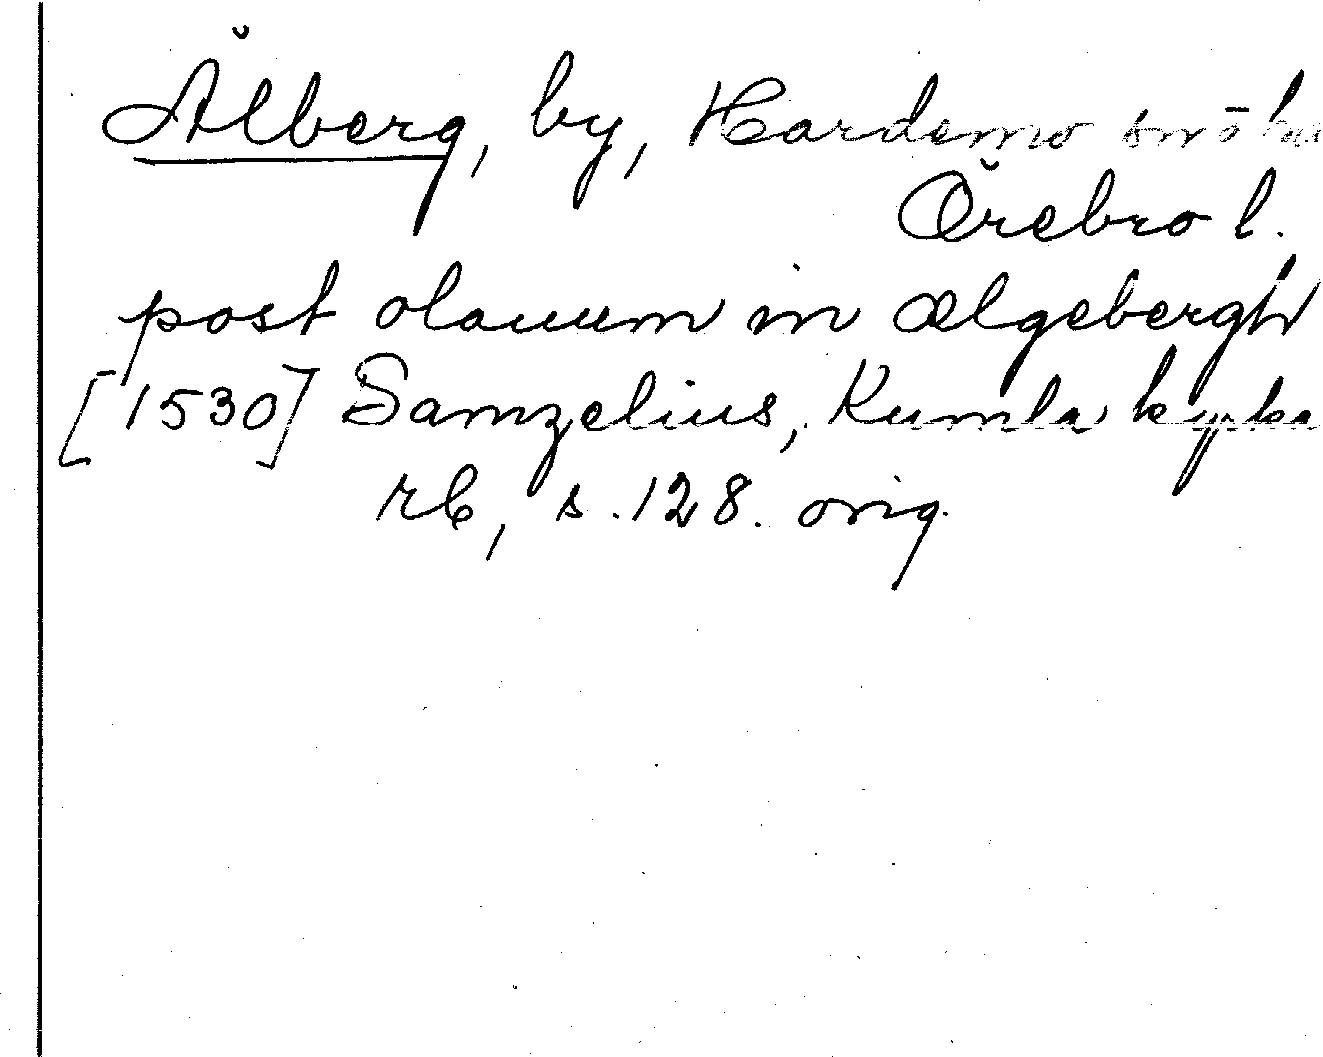 Älberg, by, Hardemo
Örebro l.
post olauum in ælgebergh
[1530] Samzelius, Kumla kyrka
rb, s. 128. orig.